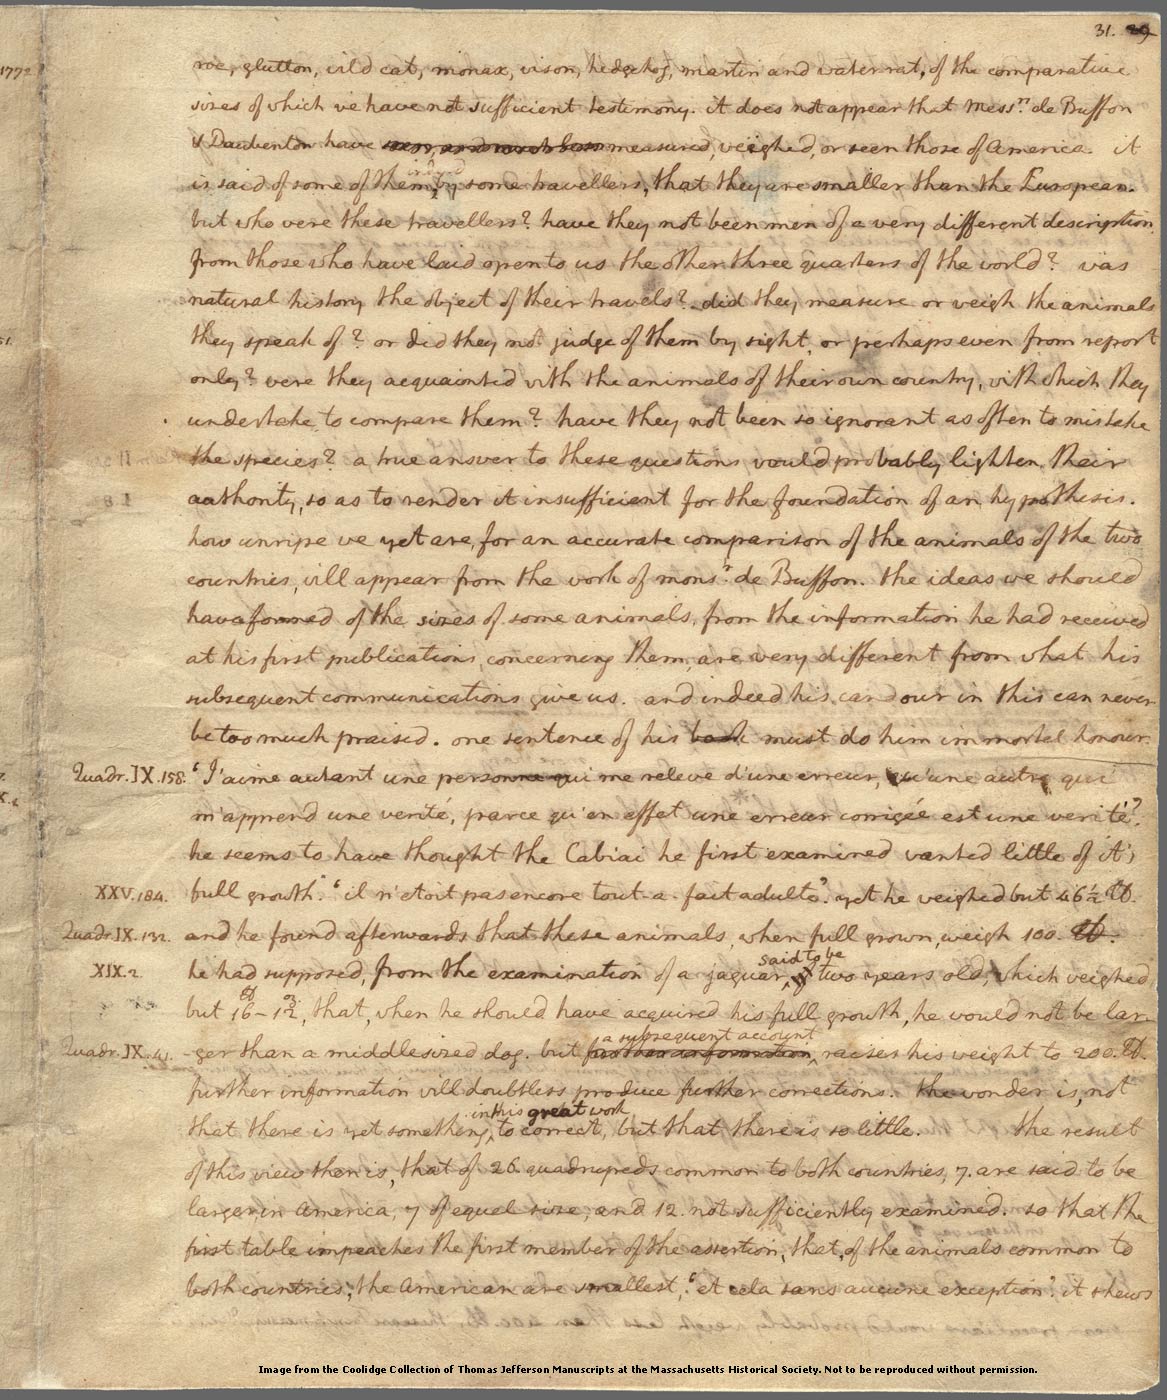 31. 29
1772
roe, glutton, wild cat, monax, vison, hedgehog, martin and water rat, of the comparative
sizes of which we have not sufficient testimony. it does not appear that Mess.rs de Buffon
& Daubenton have measured, weighed, or seen those of America. it
is said of some of them, by some travellers, that they are smaller than the European.
but who were these travellers? have they not been men of a very different description
from those who have laid open to us the other three quarters of the world? was
natural history the object of their travels? did they measure or weigh the animals
they speak of? or did they not judge of them by sight, or perhaps even from report
only? were they acquainted with the animals of their own country, with which they
undertake to compare them? have they not been so ignorant as often to mistake
the species? a true answer to these questions would probably lighten their
authority, so as to render it insufficient for the foundation of an hypothesis.
how unripe we yet are, for an accurate comparison of the animals of the two
countries, will appear from the work of mons.r de Buffon. the ideas we should
have formed of the sizes of some animals, from the information he had received
at his first publications concerning them, are very different from what his
subsequent communications give us. and indeed his candour in this can never
be too much praised. one sentence of his book must do him immortal honour.
Quadr. IX. 158. 'J'aime autant une personne qui me releve d'une erreur, qu'une autre qui
m'apprend une verité, parce qu'en effet une erreur corrigée est une verité.'
he seems to have thought the Cabiai he first examined wanted little of it's
XXV. 184. full growth. 'il n'etoit pas encore tout-a-fait adulte.' yet he weighed but 46½ ℔.
Quadr. IX. 132. and he found afterwards that these animals, when full grown, weigh 100. ℔.
said to be
XIX. 2. he had supposed, from the examination of a jaguar, two years old, which weighed
but 16 ℔ - 12 oz, that, when he should have acquired his full growth, he would not be lar-
a subsequent account
Quadr. IX. 41. -ger than a middle sized dog. but further information raises his weight to 200. ℔.
further information will doubtless produce further corrections. the wonder is, not
in this great work
that there is yet something to correct, but that there is so little. the result
of this view then is, that of 26 quadrupeds common to both countries, 7. are said to be
larger in America, 7 of equal size, and 12. not sufficiently examined. so that the
first table impeaches the first member of the assertion, that, of the animals common to
both countries, the American are smallest, 'et cela sans aucune exception.' it shews
Image from the Coolidge Collection of Thomas Jefferson Manuscripts at the Massachusetts Historical Society. Not to be reproduced without permission.